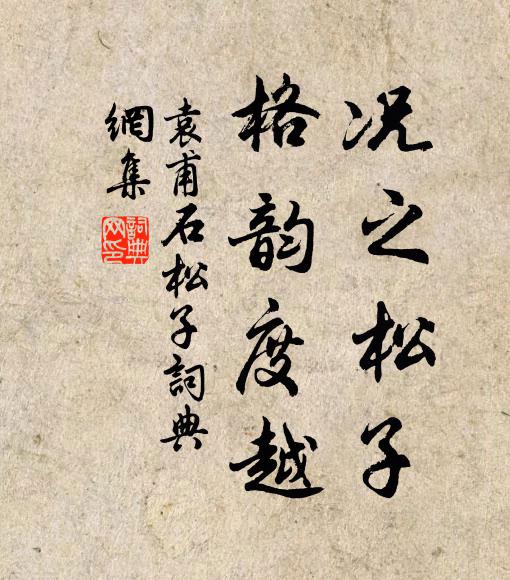 况之松子
格韵度越
袁甫石松子詞典
網集
詞典
网印